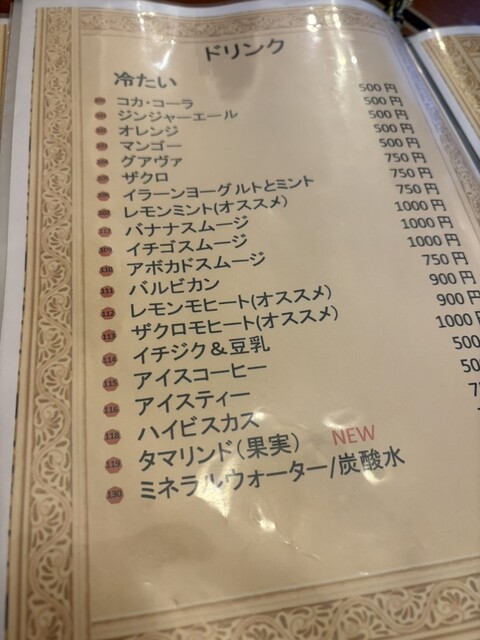 ドリンク
冷たい
コカ・コーラ 500円
ジンジャーエール 500円
オレンジ 500円
マンゴー 500円
グアヴァ 500円
ザクロ 750円
イラーンヨーグルトとミント 750円
レモンミント(オススメ) 750円
バナナスムージ 1000円
109 イチゴスムージ 1000円
110 アボカドスムージ 1000円
111 バルビカン 750円
112 レモンモヒート(オススメ) 900円
113 ザクロモヒート(オススメ) 900円
114 イチジク＆豆乳 1000円
115 アイスコーヒー 500
116 アイスティー 50
118 ハイビスカス
119 タマリンド(果実) NEW
130 ミネラルウォーター/炭酸水